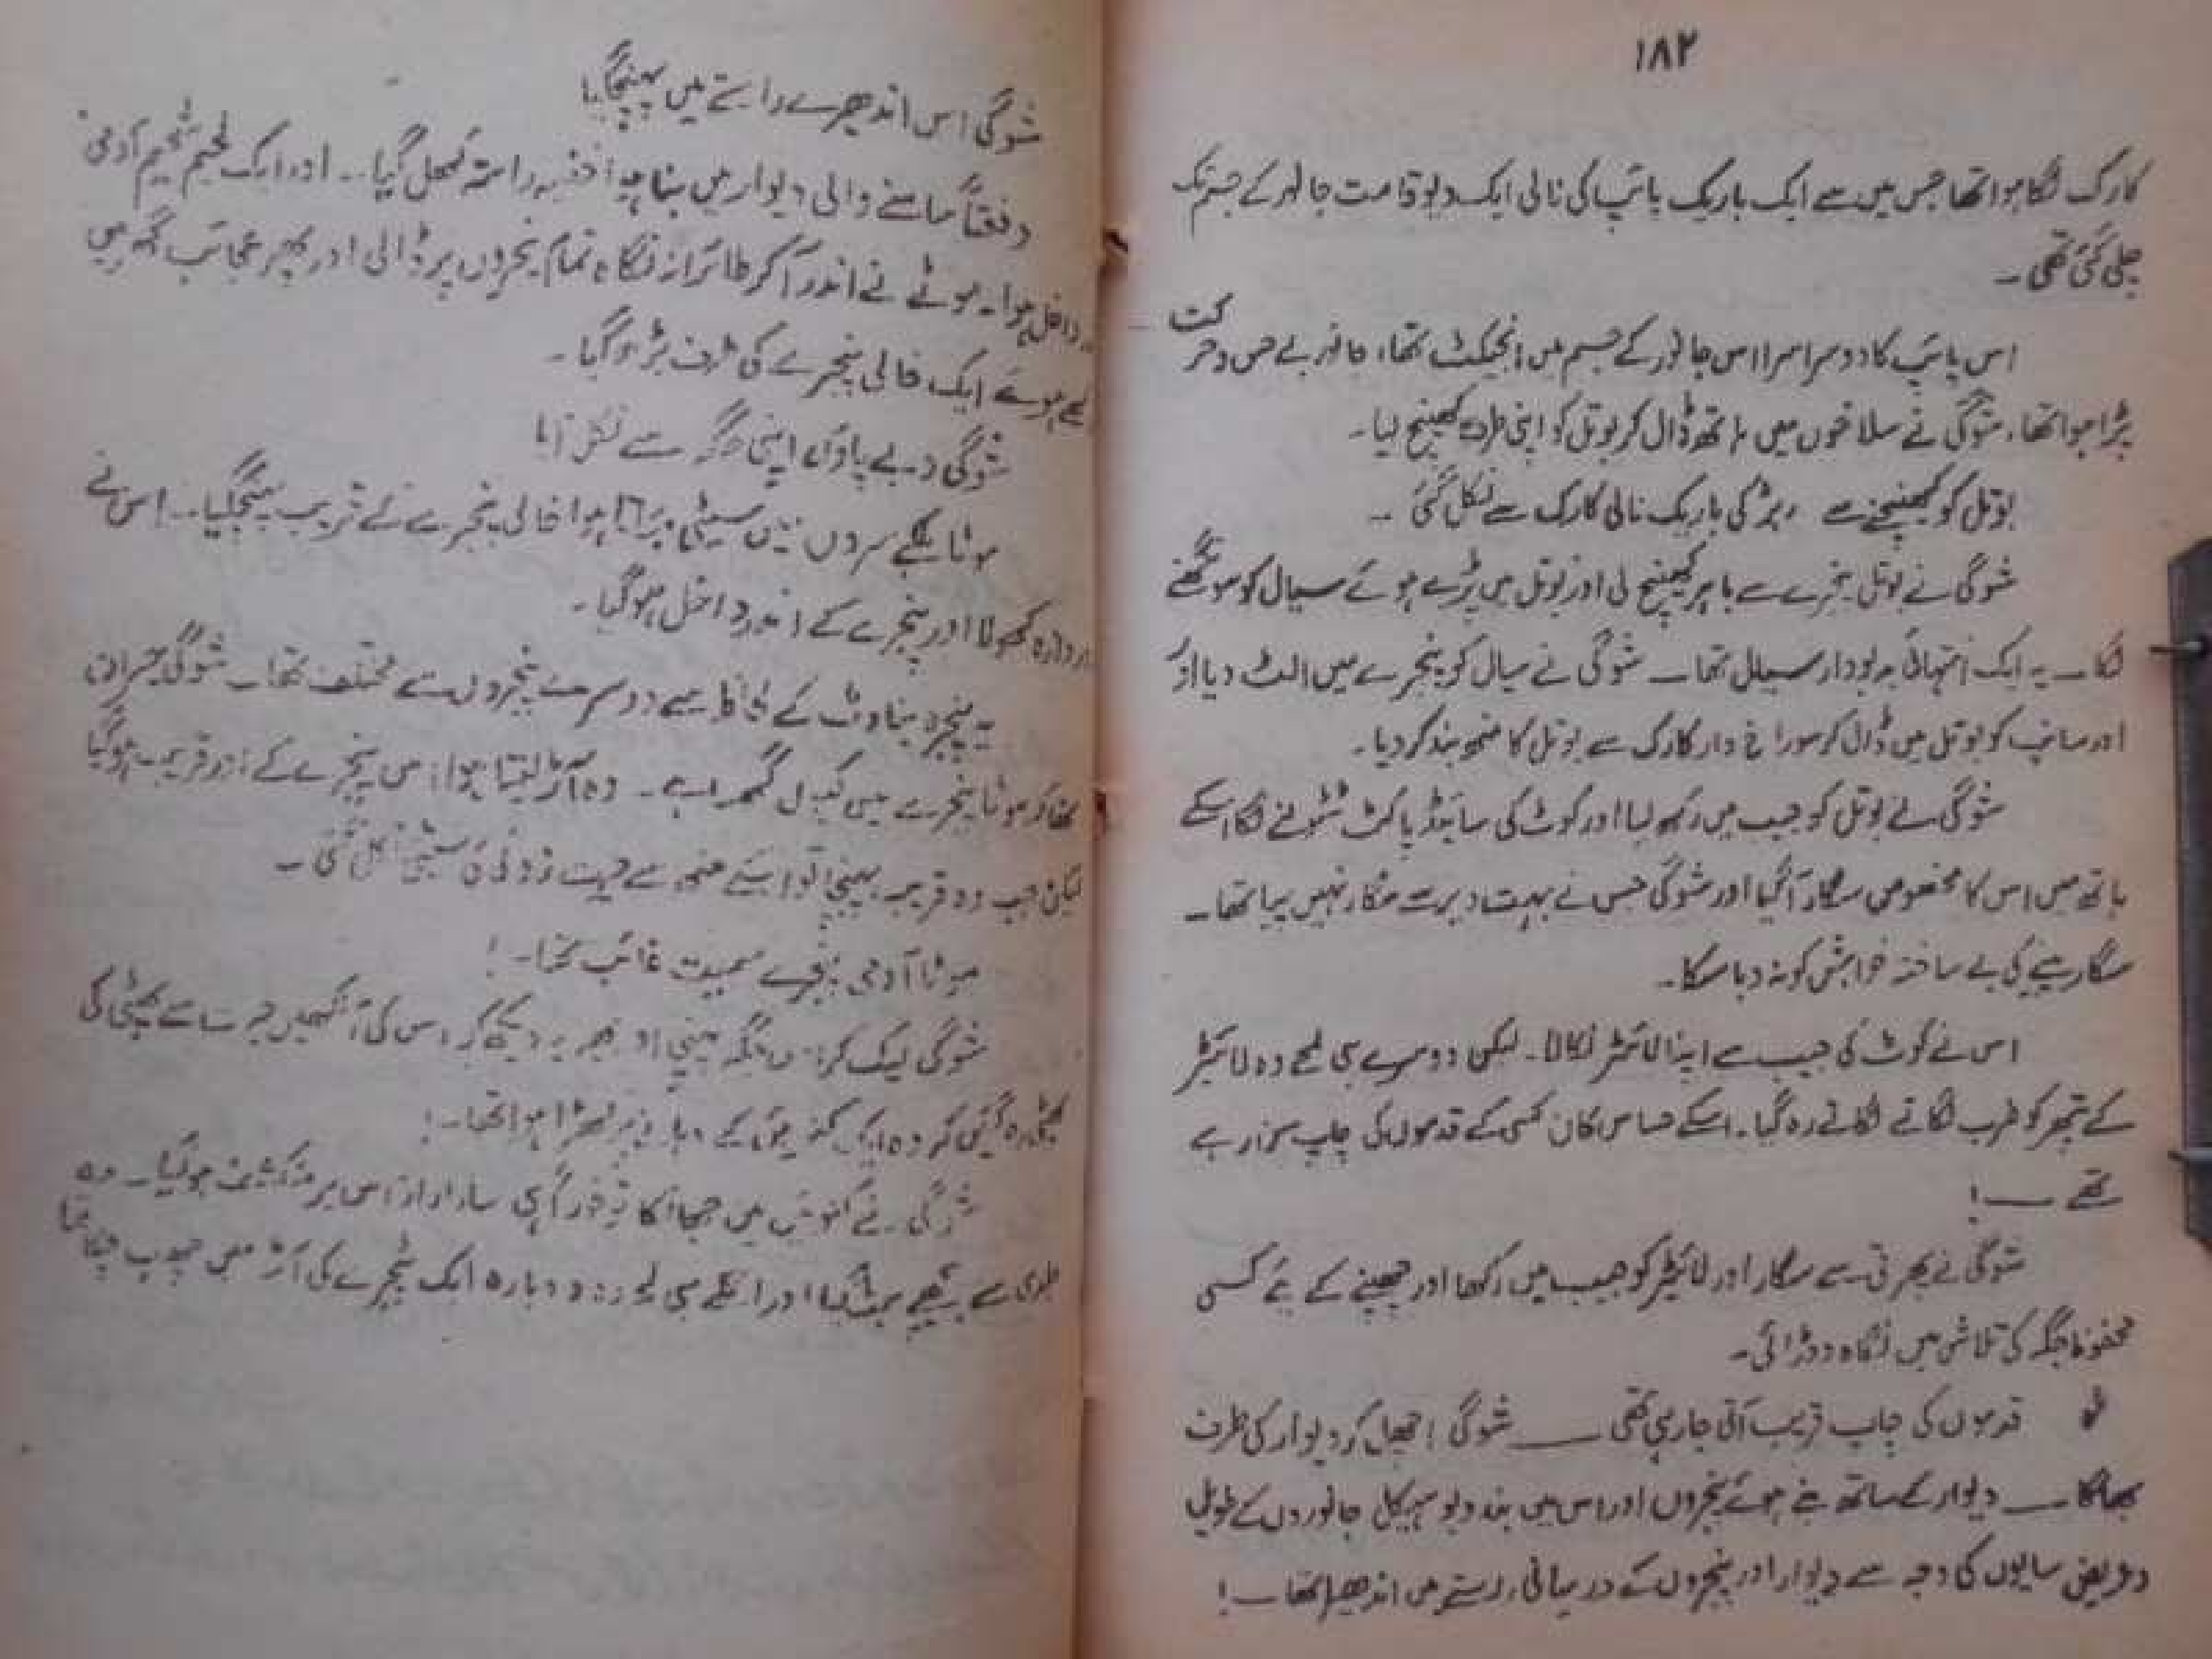 ۱۸۲
کارک لگا ہوا تھا جس میں سے ایک باریک پائپ کی نالی ایک دیو قامت جانور کے جسم تک
چلی گئی تھی ۔
اس پائپ کا دوسرا سرا اس جانور کے جسم میں انجیکٹ تھا، جانور بے حس و حرکت
پڑا ہوا تھا، شوگی نے سلاخوں میں ہاتھ ڈال کر بوتل کو اپنی طرف کھینچ لیا۔
بوتل کو کھینچنے سے ربڑ کی باریک نالی کارک سے نکل گئی ۔
شوگی نے بوتل پنجرے سے باہر کھینچ لی اور بوتل میں پڑے ہوئے سیال کو سونگھنے
لگا۔ یہ ایک انتہائی بدبودار سیال تھا۔ شوگی نے سیال کو پنجرے میں الٹ دیا اور
اور سانپ کو بوتل میں ڈال کر سوراخ دار کارک سے بوتل کا منھ بند کر دیا۔
شوگی نے بوتل کو جیب میں رکھ لیا اور کوٹ کی سائیڈ پاکٹ ٹٹولنے لگا اسکے
ہاتھ میں اس کا مخصوص سگار آگیا اور شوگی جس نے بہت دیر سے سگار نہیں پیا تھا۔
سگار پینے کی بے ساختہ خواہش کو نہ دبا سکا۔
اس نے کوٹ کی جیب سے اپنا لائیٹر نکالا۔ لیکن دوسرے ہی لمحے وہ لائیٹر
کے پتھر کو ضرب لگاتے لگاتے رہ گیا۔ اسکے حساس کان کسی کے قدموں کی چاپ سن رہے
تھے ۔!
شوگی نے پھرتی سے سگار اور لائیٹر کو جیب میں رکھا اور چھپنے کے لئے کسی
محفوظ جگہ کی تلاش میں نگاہ دوڑائی۔
قدموں کی چاپ قریب آتی جا رہی تھی ــــ شوگی اچھل کر دیوار کی طرف
بھاگا ــ دیوار کے ساتھ بنے ہوئے پنجروں اور اس میں بند دیو ہیکل جانوروں کے طویل
و عریض سایوں کی وجہ سے دیوار اور پنجروں کے درمیانی رستے میں اندھیرا تھا۔!
شوگی اس اندھیرے راستے میں پہنچ گیا!
دفعتاً سامنے والی دیوار میں بنا ہوا خفیہ راستہ کھل گیا۔۔ اور ایک لحیم شحیم آدمی
داخل ہوا۔ موٹے نے اندر آکر طائرانہ نگاہ تمام پنجروں پر ڈالی اور پھر عجائب گھر میں
ہوئے ایک خالی پنجرے کی طرف بڑھ گیا۔
شوگی دبے پاؤں اپنی جگہ سے نکل آیا
موٹا ہلکے سروں میں سیٹی بجاتا ہوا خالی پنجرے کے قریب پہنچ گیا۔ اس نے
دروازہ کھولا اور پنجرے کے اندر داخل ہو گیا۔
یہ پنجرہ بناوٹ کے لحاظ سے دوسرے پنجروں سے مختلف تھا۔ شوگی حیران
تھا کہ موٹا پنجرے میں کیوں گھسا ہے۔ وہ آڑ لیتا ہوا اس پنجرے کے اور قریب ہو گیا
لیکن جب وہ قریب پہنچا تو اسکے منھ سے حیرت زدہ سی سیٹی نکل گئی ۔
موٹا آدمی پنجرے سمیت غائب تھا۔!
شوگی لپک کر اس جگہ پہنچا اور پھر یہ دیکھ کر اس کی آنکھیں حیرت سے پھٹی کی
پھٹی رہ گئیں کہ وہ ایک کنویں کے دہانے پر کھڑا ہوا تھا۔!
شوگی نے کنویں میں جھانکا تو فوراً ہی سارا راز اس پر منکشف ہو گیا۔ وہ
جلدی سے پیچھے ہٹ گیا اور اگلے ہی لمحے وہ دوبارہ ایک پنجرے کی آڑ میں چھپ چکا تھا